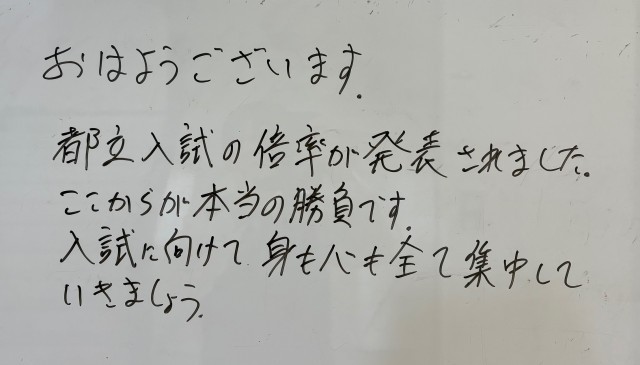 おはようございます.
都立入試の倍率が発表されました.
ここからが本当の勝負です.
入試に向けて身も心も全て集中して
いきましょう.